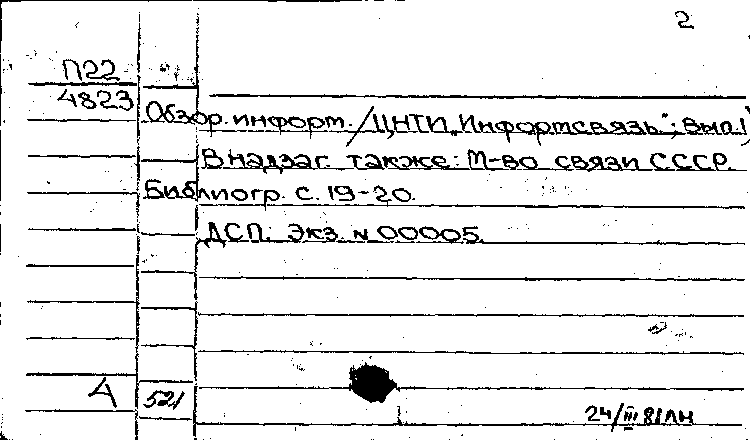 2
П22
4823
Обзор. информ. / ЦНТИ „Информсвязь"; Вып. 1)
В надзаг. также: М-во связи СССР.
Библиогр. с. 19-20.
ДСП. Экз. N 00005.
А 521
24/III 81 ЛН